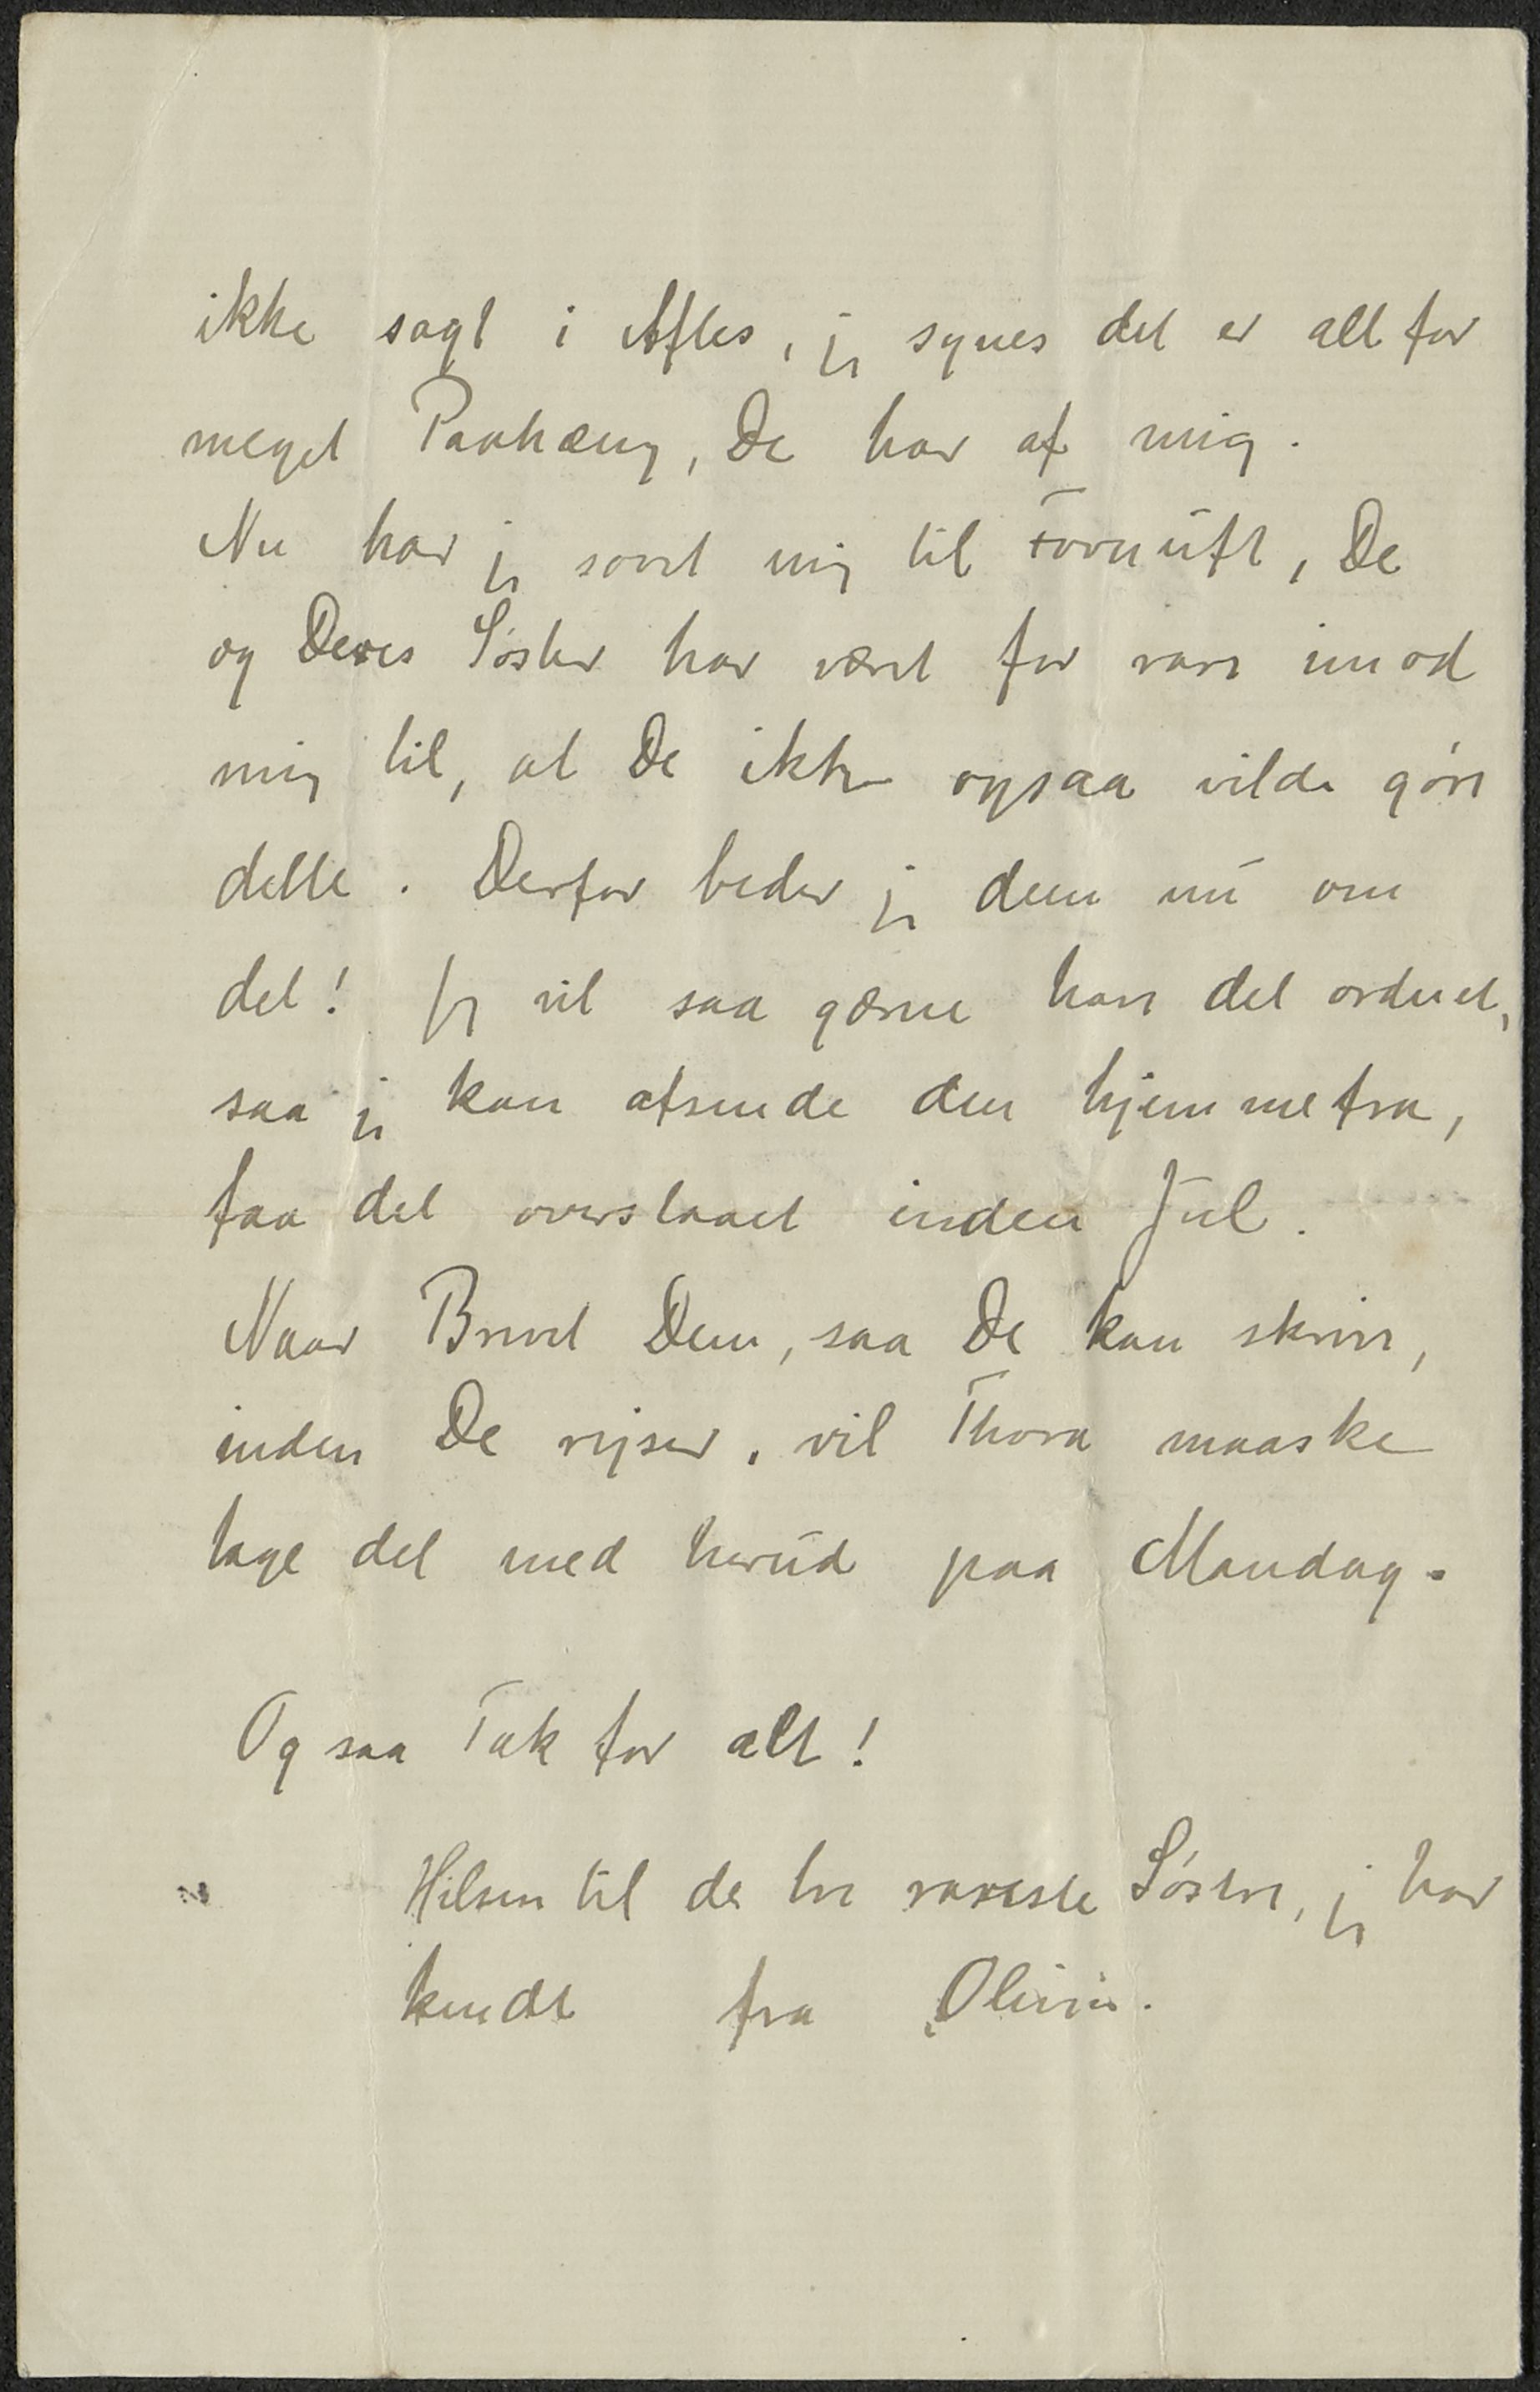 ikke sagt i Aftes, jeg synes det er alt for
meget Paahæng, De har af mig.
Nu har jeg sovet mig til Fornuft, De
og Deres Søster har været for rare imod
mig til, at De ikke ogsaa vilde gøre
dette. Derfor beder jeg dem nu om
det! Jeg vil saa gærne have det ordnet,
saa jeg kan afsende den hjemmefra,
faa det overstaaet inden Jul.
Naar Brevet Dem, saa De kan skrive,
inden De rejser, vil Thora maaske
tage det med herud paa Mandag.
Og saa Tak for alt!
Hilsen til de tre rareste Søstre, jeg har
kendt fra Olivia.